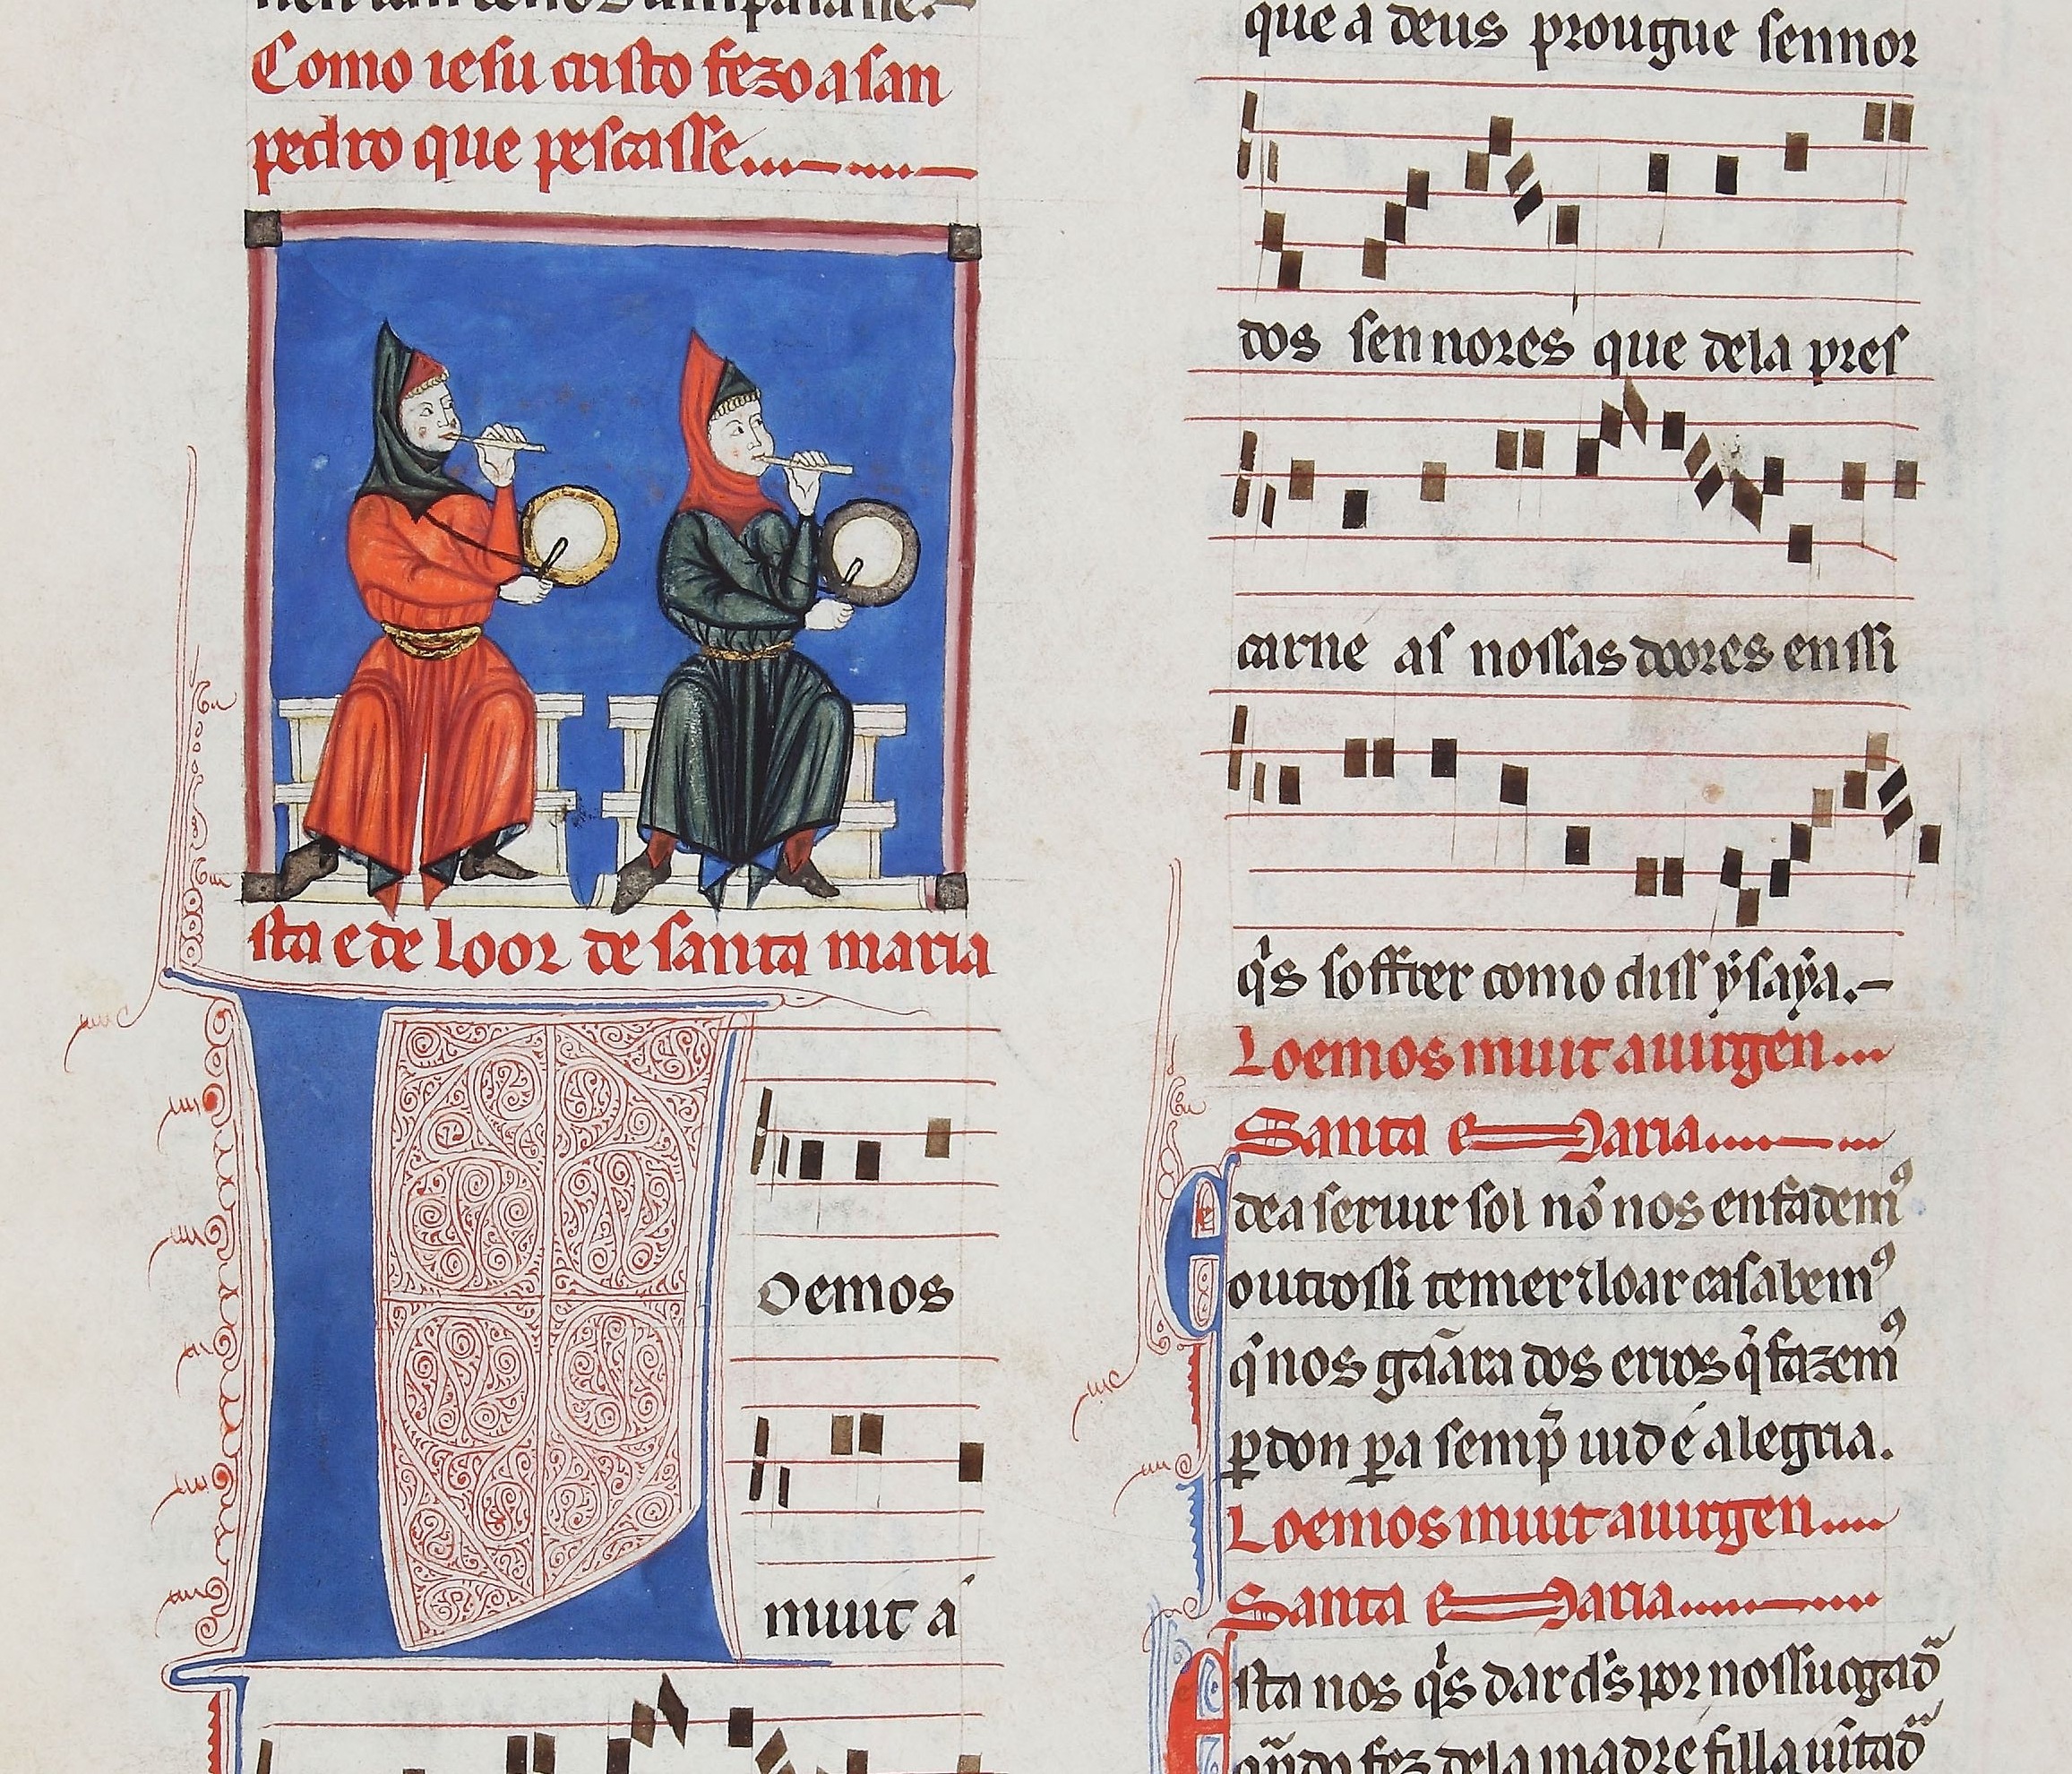 Como iesu cristo fezo a san
pedro que pescasse
sta e de loor de santa maria
oemos
muit a
que a deus prougue sennor
dos sennores que dela pres
carne as nossas doores enssi
q̇s soffrer como diss ẏsaẏa.
Loemos muit a uirgen
Santa Maria
dea seruir sol nō nos enfadem⁹
outrossi temer ⁊ loar ca sabem⁹
q̇ nos gāara dos erros q̇ fazem⁹
ꝑdon ꝑa semp̄ uid é alegria.
Loemos muit a uirgen
Santa Maria
Esta nos q̇s dar d̄s por nossuogad
fez dela madre filla